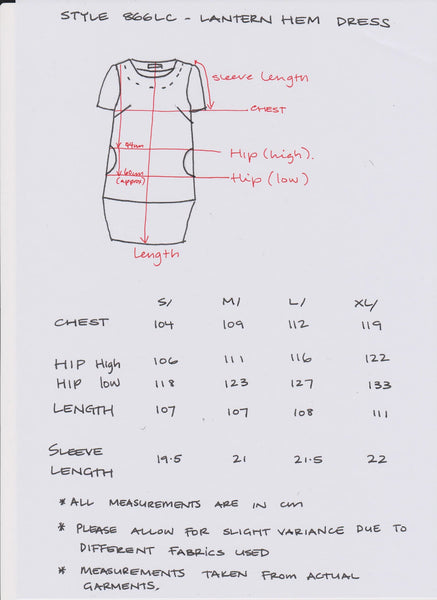 STYLE 866LC - LANTERN HEM DRESS
SLEEVE LENGTH
CHEST
44cm
HIP (high).
60cm
(approx)
HIP (low)
LENGTH
S/ M/ L/ XL/
CHEST 104 109 112 119
HIP High 106 111 116 122
HIP low 118 123 127 133
LENGTH 107 107 108 111
SLEEVE
LENGTH 19.5 21 21.5 22
* ALL MEASUREMENTS ARE IN cm
* PLEASE ALLOW FOR SLIGHT VARIANCE DUE TO
DIFFERENT FABRICS USED
* MEASUREMENTS TAKEN FROM ACTUAL
GARMENTS.